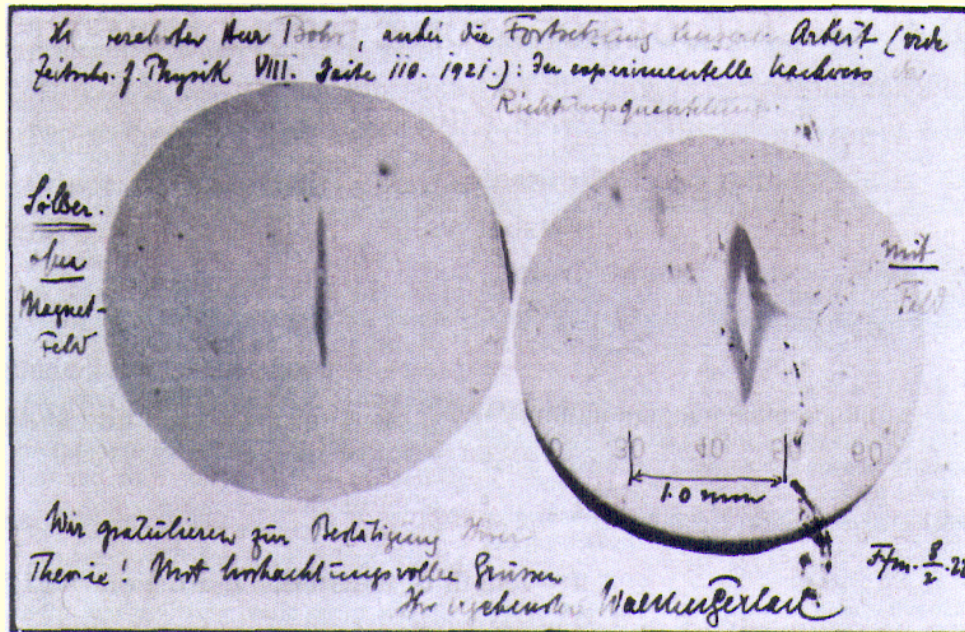 verehrter Herr Bohr, anbei die Fortsetzung unserer Arbeit (vide
Zeitschr. f. Physik VIII. Seite 110. 1921.): Der experimentelle Nachweis der
Richtungsquantelung.
Silber.
ohne
Magnet-
Feld
mit
Feld
0 30 40 50 60
1.0 mm
Wir gratulieren zur Bestätigung Ihrer
Theorie! Mit hochachtungsvollen Grüssen
Ihr ergebenster Walther Gerlach.
Ffm. 8/2.22